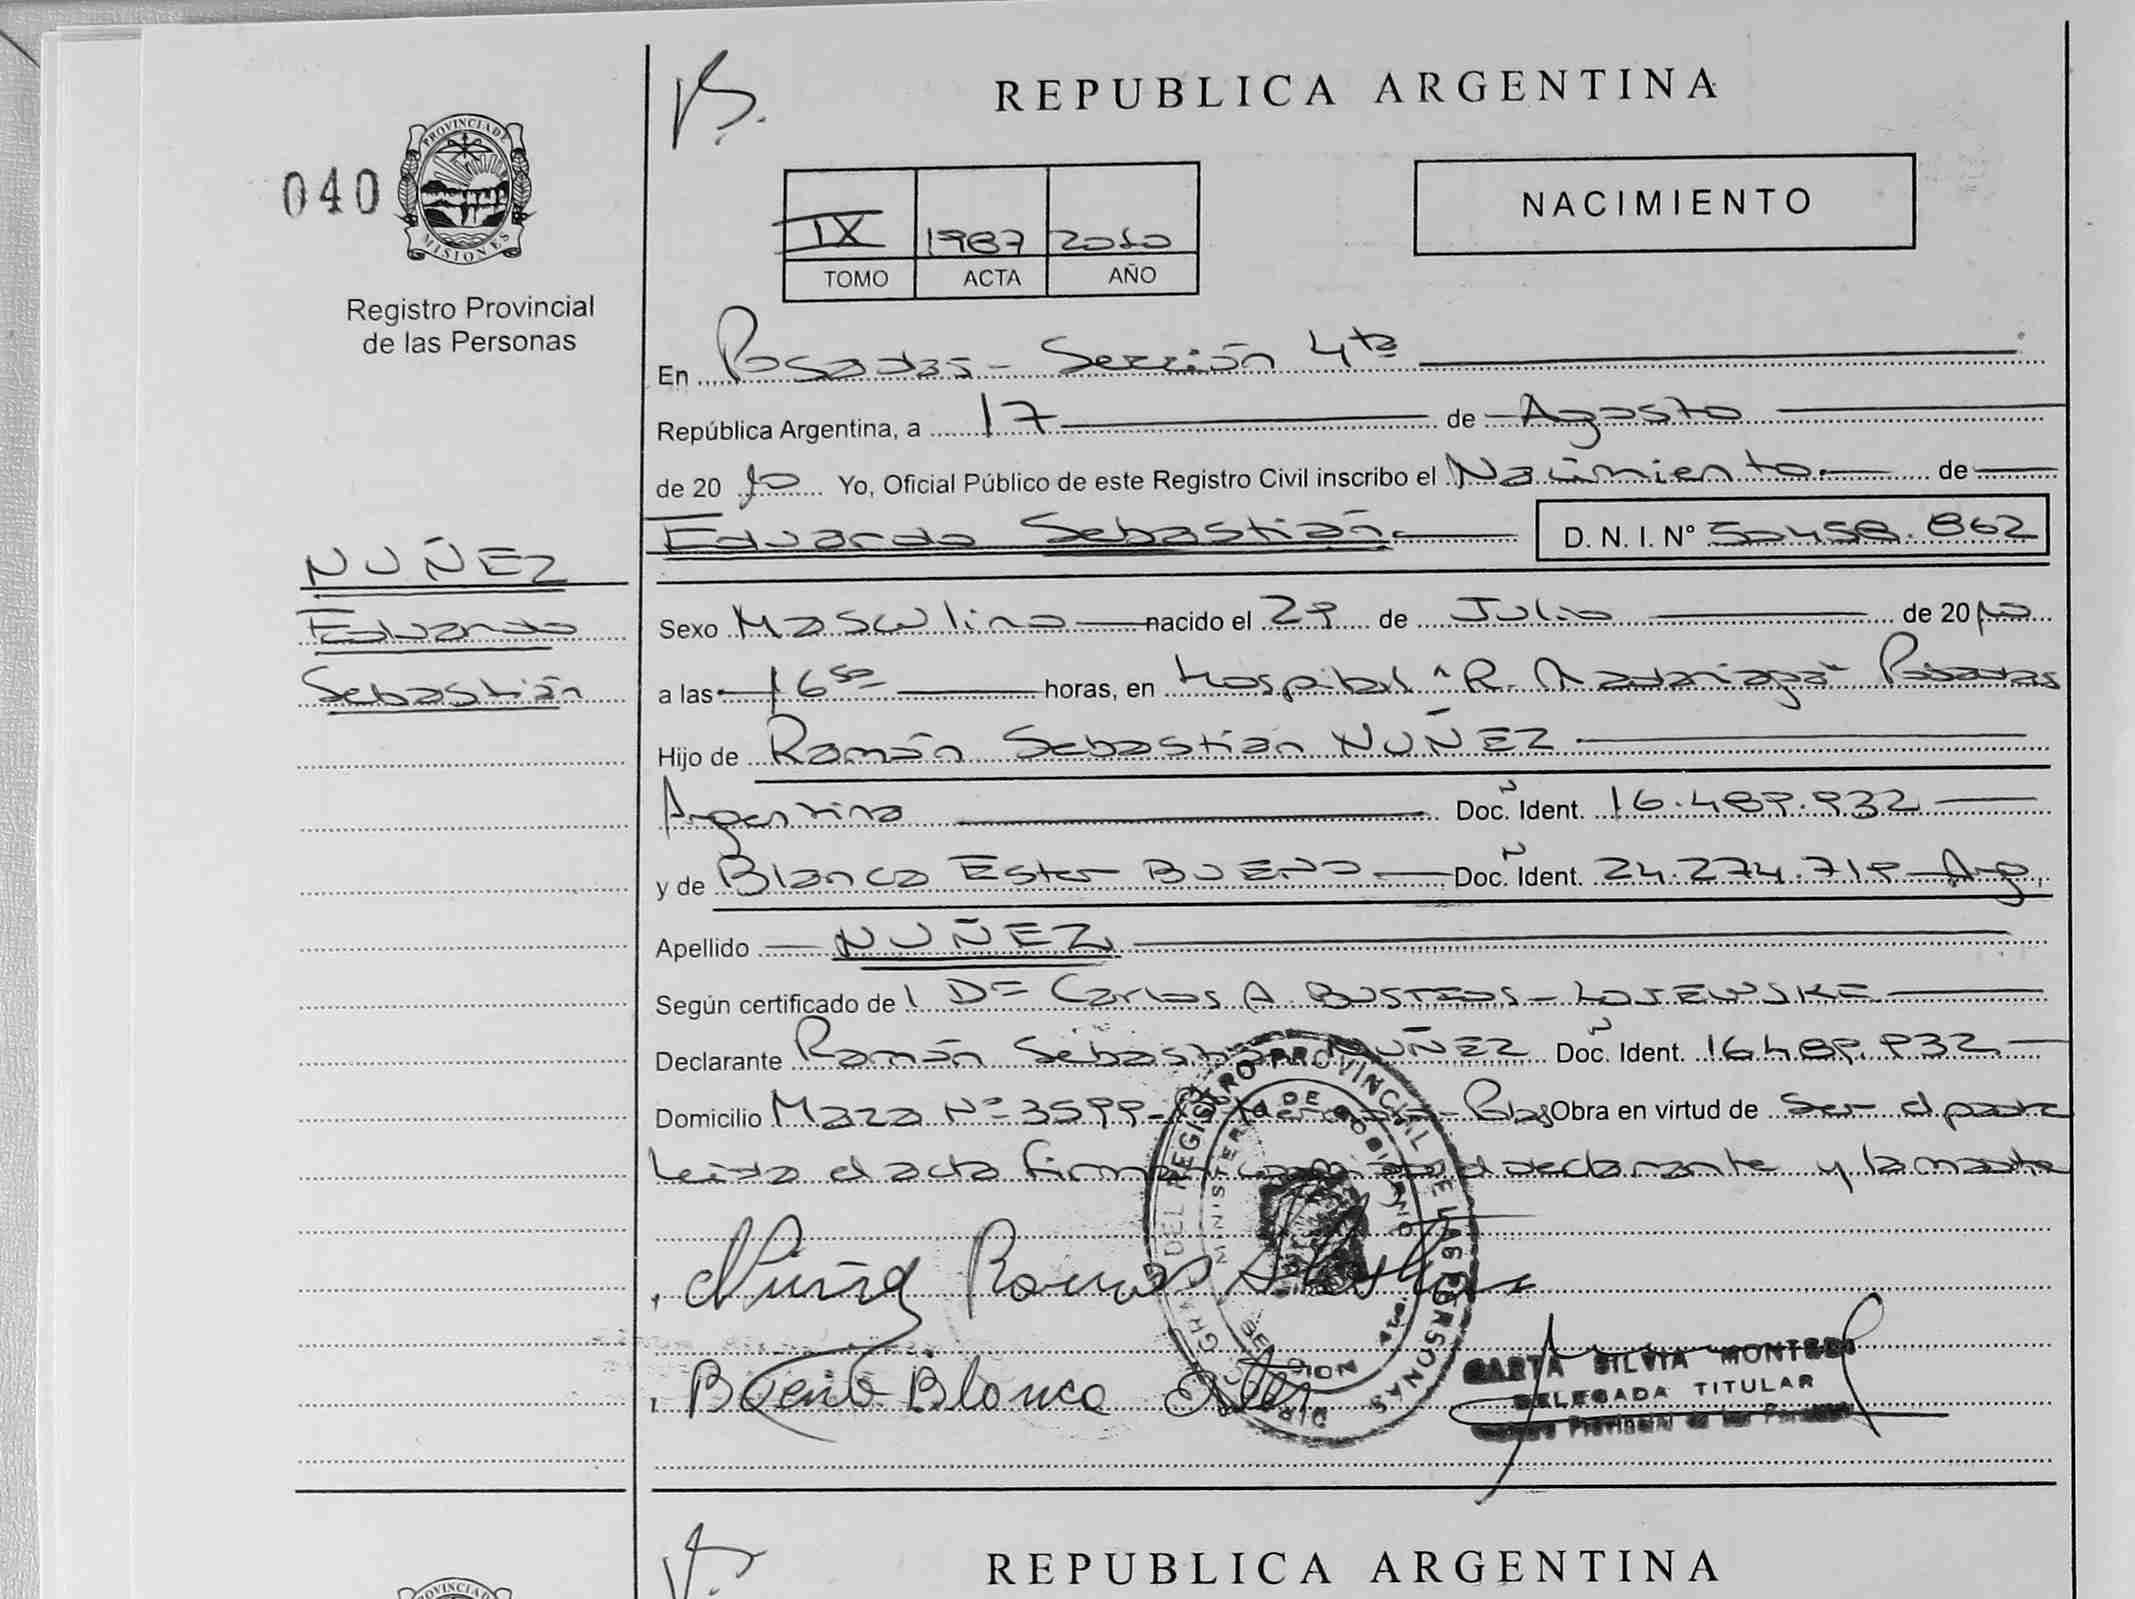 REPUBLICA ARGENTINA
040
PROVINCIA DE
MISIONES
Registro Provincial
de las Personas
NACIMIENTO
IX 1987 2010
TOMO ACTA AÑO
En Posadas - Sección 4ta
República Argentina, a 17 de Agosto
de 2010 Yo, Oficial Público de este Registro Civil inscribo el Nacimiento de
Eduardo Sebastián D. N. I. N° 50458.862
NUÑEZ
Eduardo
Sebastián
Sexo Masculino nacido el 29 de Julio de 2010
a las 16 50 horas, en Hospital "R. Madariaga" Posadas
Hijo de Ramón Sebastián NUÑEZ
Argentino Doc. Ident. 16.489.932
y de Blanca Ester BUENO Doc. Ident. 24.274.719 Arg.
Apellido NUÑEZ
Según certificado de Carlos A. BUSTEOS -
Declarante Ramón Sebastián NUÑEZ Doc. Ident. 16.489.932
Domicilio Maza Nº 3599 - Pdas Obra en virtud de Ser el padre
Leida el acta firman el declarante y la madre
REGISTRO PROVINCIAL DE LAS PERSONAS
MINISTERIO DE GOBIERNO
Nuñez Ramon
Bueno Blanca Ester
SILVIA
DELEGADA TITULAR
Provincial de las Personas
REPUBLICA ARGENTINA